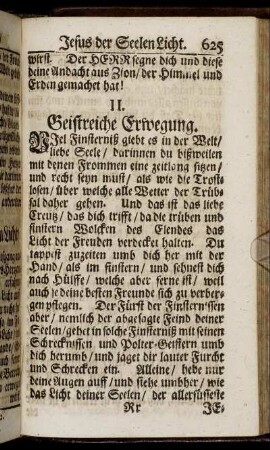 Jesus der Seelen Licht. 625
wirst. Der HERR segne dich und diese
deine Andacht aus Zion/ der Himmel und
Erden gemachet hat!
II.
Geistreiche Erwegung.
VJel Finsterniß giebt es in der Welt/
liebe Seele/ darinnen du bißweilen
mit denen Frommen eine zeitlang sitzen/
und recht seyn must/ als wie die Trost-
losen/ über welche alle Wetter der Trüb-
sal daher gehen. Und das ist das liebe
Creutz/ das dich trifft/ da die trüben und
finstern Wolcken des Elendes das
Licht der Freuden verdecket halten. Du
tappest zuzeiten umb dich her mit der
Hand/ als im finstern/ und sehnest dich
nach Hülffe/ welche aber ferne ist/ weil
auch je deine besten Freunde sich zu verber-
gen pflegen. Der Fürst der Finsternissen
aber/ nemlich der abgesagte Feind deiner
Seelen/ gehet in solche Finsterniß mit seinen
Schrecknussen und Polter-Geistern umb
dich herumb/ und jaget dir lauter Furcht
und Schrecken ein. Alleine/ hebe nur
deine Augen auff/ und siehe umbher/ wie
das Licht deiner Seelen/ der allersüsseste
Rr JE-